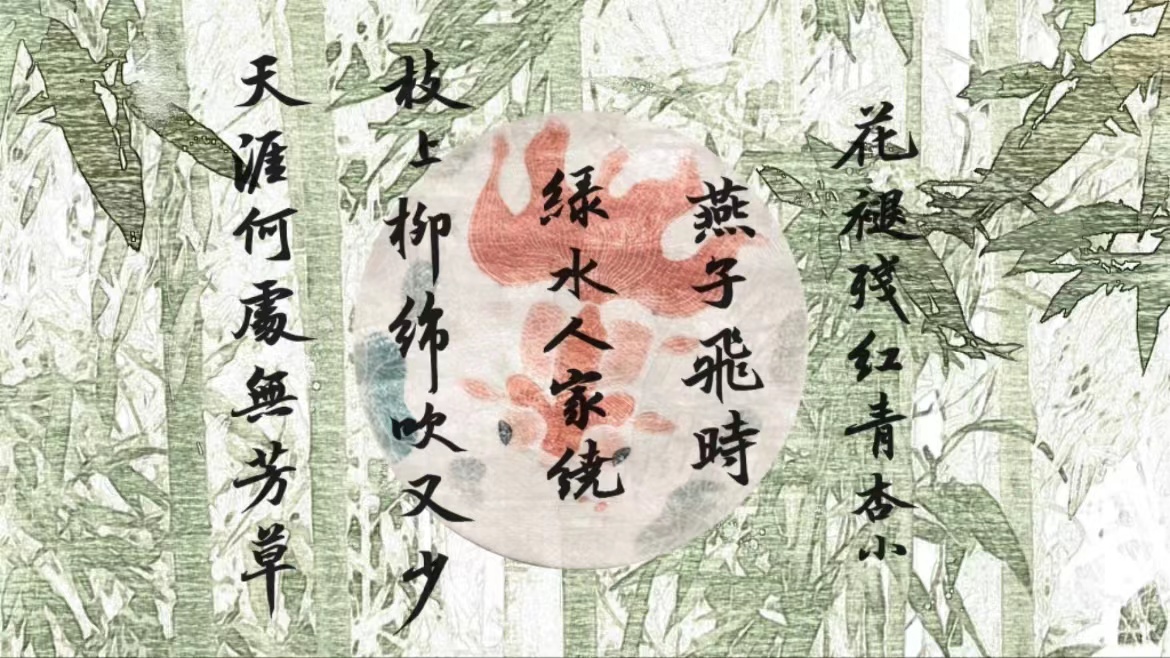 花褪残红青杏小
燕子飛時
緑水人家繞
枝上柳綿吹又少
天涯何處無芳草